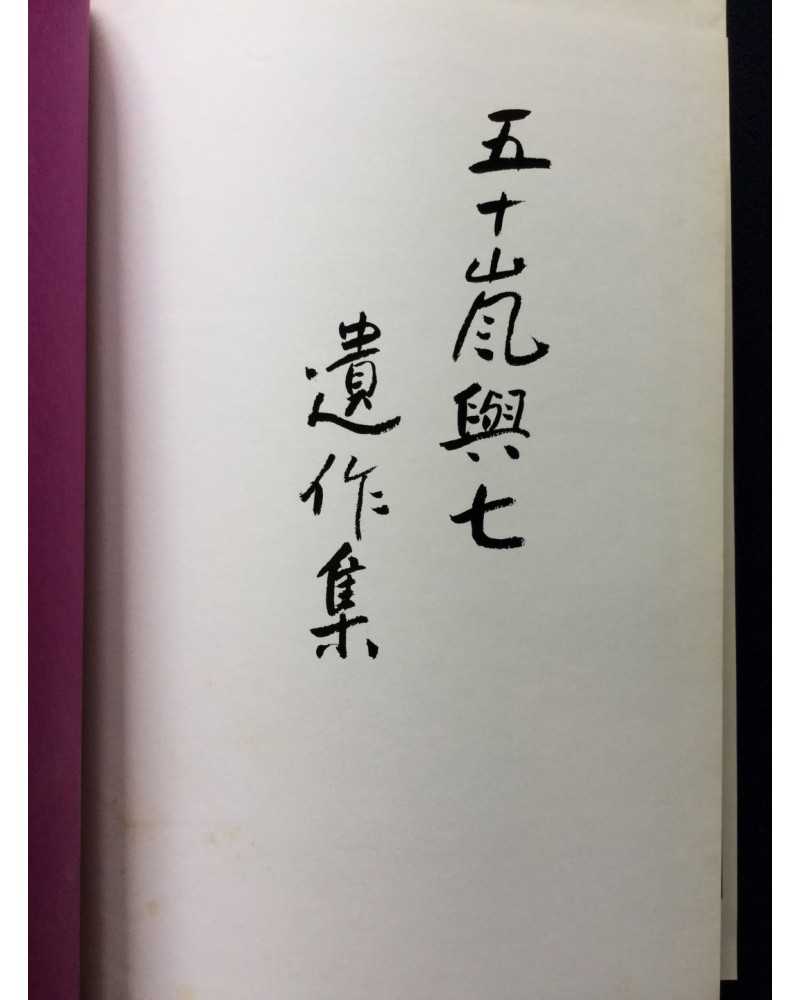 五十嵐與七
遺作集